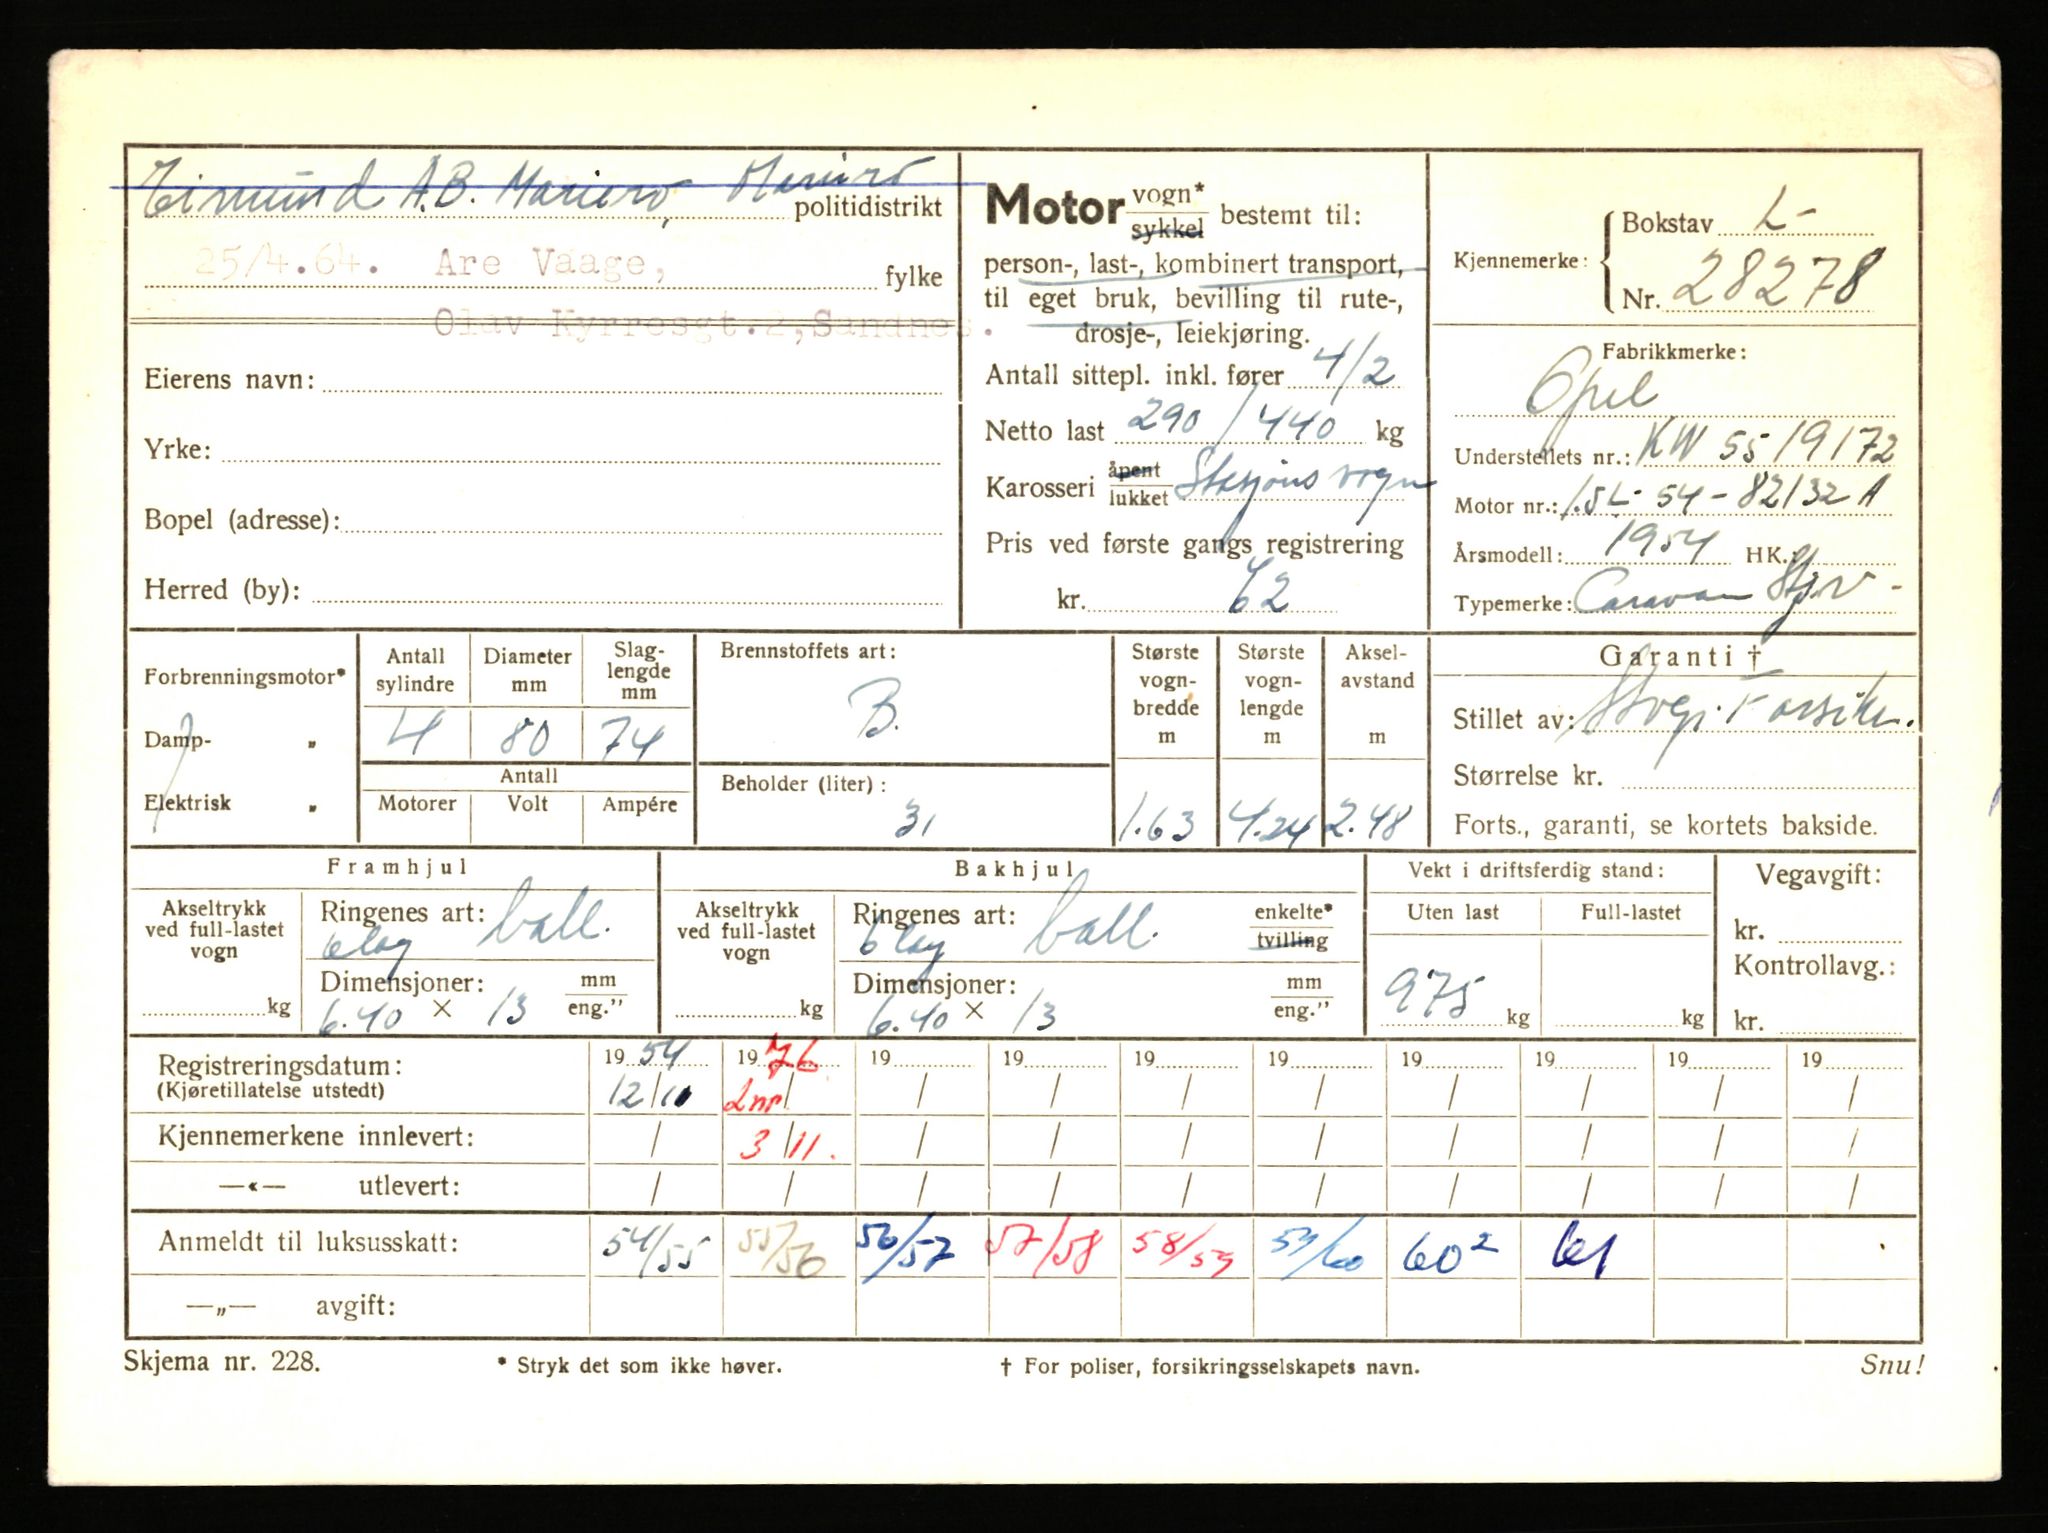 Eimund A.B. Mariero, Mariero politidistrikt
25/4.64. Are Vaage, fylke
Olav Kyrresgt.2, Sandnes.
Eierens navn:
Yrke:
Bopel (adresse):
Herred (by):
Motor vogn* sykkel bestemt til:
person-, last-, kombinert transport,
til eget bruk, bevilling til rute-,
drosje-, leiekjøring.
Antall sittepl. inkl. fører 4/2
Netto last 290/440 kg
Karosseri åpent lukket Stasjonsvogn
Pris ved første gangs registrering
kr. 62
Kjennemerke: Bokstav L-
Nr. 28278
Fabrikkmerke:
Opel
Understellets nr.: KW 5519172
Motor nr.: 1.5L-54-82132 A
Årsmodell: 1954 HK.:
Typemerke: Caravan Stj.v-
Forbrenningsmotor*
Damp- „
Elektrisk „
Antall sylindre Diameter mm Slag-lengde mm
4 80 74
Antall
Motorer Volt Ampére
Brennstoffets art:
B.
Beholder (liter):
31
Største vogn-bredde m Største vogn-lengde m Aksel-avstand m
1.63 4.24 2.48
Garanti †
Stillet av: Forsikr.
Størrelse kr.
Forts., garanti, se kortets bakside.
Framhjul
Akseltrykk ved full-lastet vogn kg
Ringenes art: ball.
6 lag
Dimensjoner: mm eng."
6.40 × 13
Bakhjul
Akseltrykk ved full-lastet vogn kg
Ringenes art: ball. enkelte* tvilling
6 lag
Dimensjoner: mm eng."
6.40 × 13
Vekt i driftsferdig stand:
Uten last Full-lastet
975 kg kg
Vegavgift:
kr.
Kontrollavg.:
kr.
Registreringsdatum: 19 54 19 76 19 19 19 19 19 19 19 19
(Kjøretillatelse utstedt) 12/10 Lnr / / / / / / / / /
Kjennemerkene innlevert: / 3/11. / / / / / / / /
—«— utlevert: / / / / / / / / / /
Anmeldt til luksusskatt: 54/55 55/56 56/57 57/58 58/59 59/60 60² 61
—„— avgift:
Skjema nr. 228. * Stryk det som ikke høver. † For poliser, forsikringsselskapets navn. Snu!